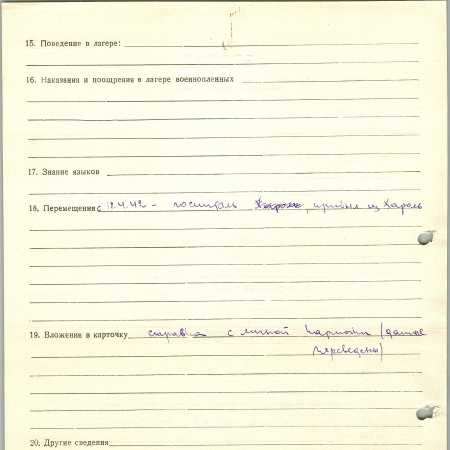 15. Поведение в лагере:
16. Наказания и поощрения в лагере военнопленных
17. Знание языков
18. Перемещения с 18.4.42 – госпиталь Хароль, прибыл из Хароль
19. Вложения в карточку справка с личной карточки (данные
переведены)
20. Другие сведения